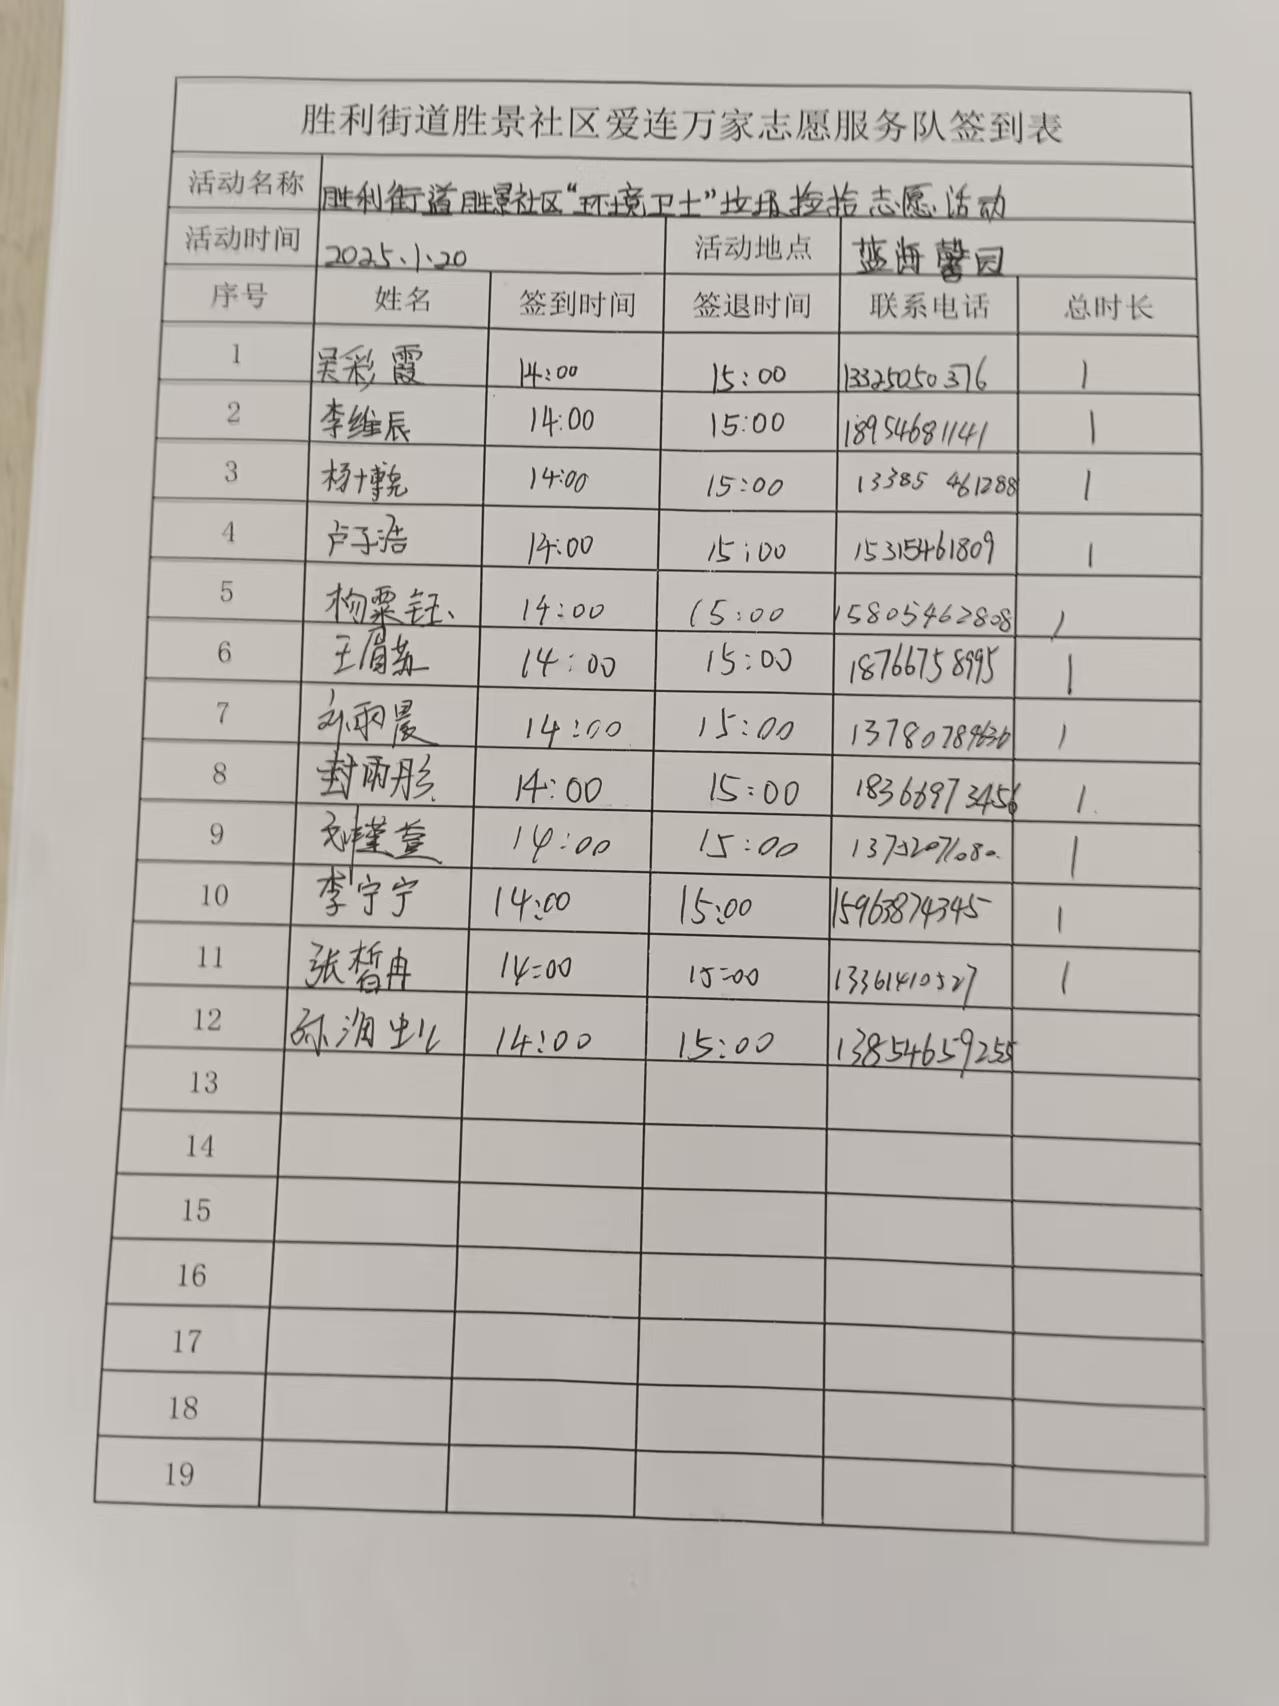 胜利街道胜景社区爱连万家志愿服务队签到表
活动名称 胜利街道胜景社区“环境卫士”垃圾捡拾志愿活动
活动时间 2025.1.20 活动地点 蓝海馨园
序号 姓名 签到时间 签退时间 联系电话 总时长
1 吴彩霞 14:00 15:00 13325050376 1
2 李维辰 14:00 15:00 18954681141 1
3 杨博尧 14:00 15:00 13385 461288 1
4 卢子浩 14:00 15:00 15315461809 1
5 杨粟钰 14:00 15:00 15805462808 1
6 王眉苏 14:00 15:00 18766758995 1
7 刘雨晨 14:00 15:00 1
8 封雨彤 14:00 15:00 18366973456 1
9 刘瑾萱 14:00 15:00 1
10 李宁宁 14:00 15:00 15963874345 1
11 张皙冉 14:00 15:00 13361410527 1
12 14:00 15:00 13854659255
13
14
15
16
17
18
19